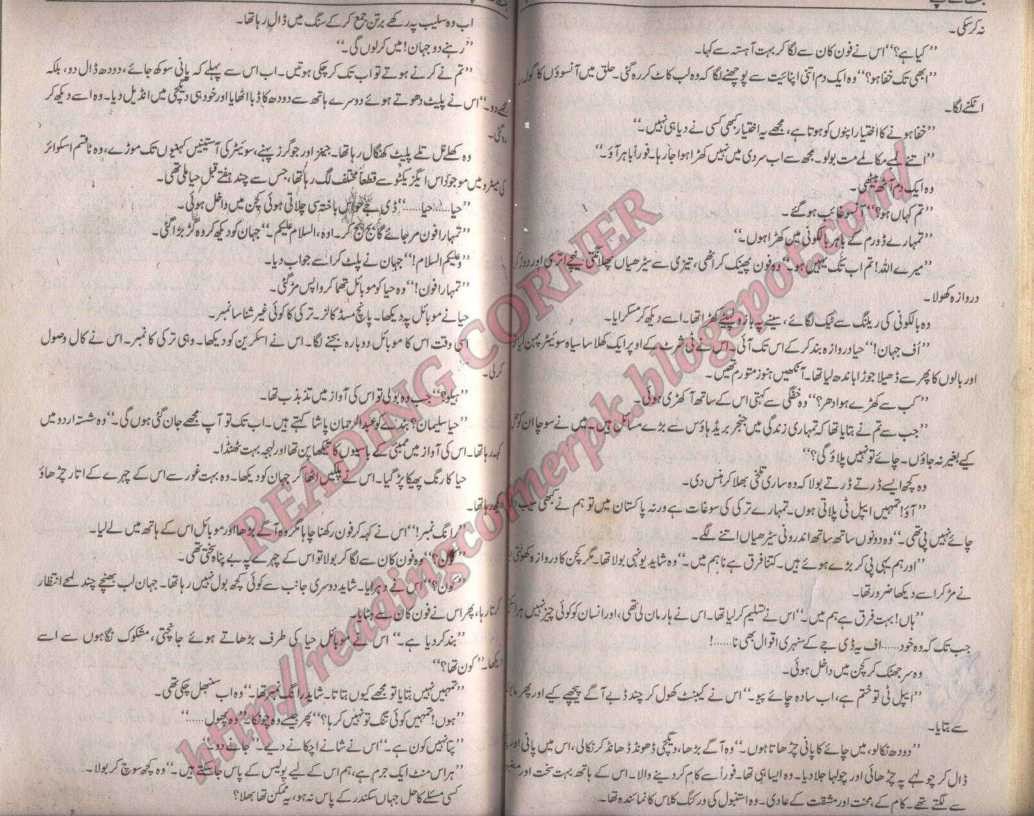 نہ کر سکی۔
”کیا ہے؟“ اس نے فون کان سے لگا کر بہت آہستہ سے کہا۔
”ابھی تک خفا ہو؟“ وہ ایک دم اتنی اپنائیت سے پوچھنے لگا کہ وہ لب کاٹ کر رہ گئی۔ حلق میں آنسوؤں کا گولہ
اٹکنے لگا۔
”خفا ہونے کا اختیار اپنوں کو ہوتا ہے، مجھے یہ اختیار کبھی کسی نے دیا ہی نہیں۔“
”اتنے لمبے مکالمے مت بولو۔ مجھ سے اب سردی میں نہیں کھڑا ہوا جا رہا۔ فوراً باہر آؤ۔“
وہ ایک دم اٹھ بیٹھی۔
”تم کہاں ہو؟“ آنسو غائب ہو گئے۔
”تمہارے ڈورم کے باہر بالکونی میں کھڑا ہوں۔“
”میرے اللہ! تم اب تک یہیں ہو۔“ وہ فون پھینک کر اٹھی، تیزی سے سیڑھیاں پھلانگتی نیچے اتری اور دوڑ کر
دروازہ کھولا۔
وہ بالکونی کی ریلنگ سے ٹیک لگائے، سینے پہ بازو لپیٹے کھڑا تھا۔ اسے دیکھ کر مسکرایا۔
”اف جہان!“ حیا دروازہ بند کر کے اس تک آئی۔ اس نے ٹی شرٹ کے اوپر ایک کھلا سا سیاہ سوئیٹر پہن لیا
اور بالوں کا پھر سے ڈھیلا جوڑا باندھ لیا تھا۔ آنکھیں ہنوز متورم تھیں۔
”کب سے کھڑے ہو ادھر؟“ وہ خفگی سے کہتی اس کے ساتھ آ کھڑی ہوئی۔
”جب سے تم نے بتایا تھا کہ تمہاری زندگی میں جنجر بریڈ ہاؤس سے بڑے مسائل ہیں۔ میں نے سوچا ان کو
کیے بغیر نہ جاؤں۔ چائے تو نہیں پلاؤ گی؟“
وہ کچھ ایسے ڈرتے ڈرتے بولا کہ وہ ساری تلخی بھلا کر ہنس دی۔
”آؤ! تمہیں ایپل ٹی پلاتی ہوں۔ تمہارے ترکی کی سوغات ہے ورنہ پاکستان میں تو ہم نے کبھی سیب
چائے نہیں پی تھی۔“ وہ دونوں ساتھ ساتھ اندرونی سیڑھیاں اترنے لگے۔
”اور ہم یہی پی کر بڑے ہوئے ہیں۔ کتنا فرق ہے نا ہم میں۔“ وہ شاید یونہی بولا تھا۔ مگر کچن کا دروازہ
نے مڑ کر اسے دیکھا ضرور تھا۔
”ہاں! بہت فرق ہے ہم میں۔“ اس نے تسلیم کر لیا تھا۔ اس نے ہار مان لی تھی، اور انسان کو کوئی چیز نہیں
جب تک کہ وہ خود...... اف یہ ڈی جے کے سنہری اقوال بھی نا......!
وہ سر جھٹک کر کچن میں داخل ہوئی۔
”ایپل ٹی تو ختم ہے، اب سادہ چائے پیو۔“ اس نے کیبنٹ کھول کر چند ڈبے آگے پیچھے کیے اور پھر
سے بتایا۔
”دودھ نکالو، میں چائے کا پانی چڑھاتا ہوں۔“ وہ آگے بڑھا، دیگچی ڈھونڈ ڈھانڈ کر نکالی، اس میں پانی
ڈال کر چولہے پہ چڑھائی اور چولہا جلا دیا۔ وہ ایسا ہی تھا۔ فوراً سے کام کر دینے والا۔ اس کے ہاتھ بہت سخت اور
سے لگتے تھے۔ کام کے، محنت اور مشقت کے عادی۔ وہ استنبول کی ورکنگ کلاس کا نمائندہ تھا۔
اب وہ سلیب پہ رکھے برتن جمع کر کے سنک میں ڈال رہا تھا۔
”رہنے دو جہان! میں کر لوں گی۔“
”تم نے کرنے ہوتے تو اب تک کر چکی ہوتیں۔ اب اس سے پہلے کہ پانی سوکھ جائے، دودھ ڈال دو، بلکہ
مجھے دو۔“ اس نے پلیٹ دھوتے ہوئے دوسرے ہاتھ سے دودھ کا ڈبا اٹھایا اور خود ہی دیگچی میں انڈیل دیا۔ وہ اسے دیکھ کر
رہ گئی۔
وہ کھلے نل تلے پلیٹ کھنگال رہا تھا۔ جینز اور جوگرز پہنے، سوئیٹر کی آستینیں کہنیوں تک موڑے، وہ تاقسم اسکوائر
کی میٹرو میں موجود اس ایگزیکٹو سے قطعاً مختلف لگ رہا تھا، جس سے چند ہفتے قبل حیا ملی تھی۔
”حیا...... حیا......“ ڈی جے حواس باختہ سی چلاتی ہوئی کچن میں داخل ہوئی۔
”تمہارا فون مر جائے گا بج بج کر۔ اوہ، السلام علیکم۔“ جہان کو دیکھ کر وہ گڑبڑا گئی۔
”وعلیکم السلام!“ جہان نے پلٹ کر اسے جواب دیا۔
”تمہارا فون!“ وہ حیا کو موبائل تھما کر واپس مڑ گئی۔
حیا نے موبائل پہ دیکھا۔ پانچ مسڈ کالز۔ ترکی کا کوئی غیر شناسا نمبر۔
اسی وقت اس کا موبائل دوبارہ بجنے لگا۔ اس نے اسکرین کو دیکھا۔ وہی ترکی کا نمبر۔ اس نے کال وصول
کر لی۔
”ہیلو؟“ جب وہ بولی تو اس کی آواز میں تذبذب تھا۔
”حیا سلیمان؟ بندے کو عبدالرحمان پاشا کہتے ہیں۔ اب تک تو آپ مجھے جان گئی ہوں گی۔“ وہ شستہ اردو میں
کہہ رہا تھا۔ اس کی آواز میں ممبئی کے باسیوں کا تیکھا پن تھا اور لہجہ بہت ٹھنڈا۔
حیا کا رنگ پھیکا پڑ گیا۔ اس نے پلکیں اٹھا کر جہان کو دیکھا۔ وہ بہت غور سے اس کے چہرے کے اتار چڑھاؤ
دیکھ رہا تھا۔
”رانگ نمبر!“ اس نے کہہ کر فون رکھنا چاہا مگر وہ آگے بڑھا اور موبائل اس کے ہاتھ میں سے لے لیا۔
”کون؟“ وہ فون کان سے لگا کر بولا تو اس کے چہرے پہ بے پناہ سختی تھی۔
”کون؟“ اس نے دہرایا۔ شاید دوسری جانب سے کوئی کچھ بول نہیں رہا تھا۔ جہان لب بھینچے چند لمحے انتظار
کرتا رہا، پھر اس نے فون کان سے ہٹایا۔
”بند کر دیا ہے۔“ اس نے موبائل حیا کی طرف بڑھاتے ہوئے جانچتی، مشکوک نگاہوں سے اسے
دیکھا۔ ”کون تھا؟“
”تمہیں نہیں بتایا تو مجھے کیوں بتاتا۔ شاید رانگ نمبر تھا۔“ وہ اب سنبھل چکی تھی۔
”ہوں! تمہیں کوئی تنگ تو نہیں کر رہا؟“ پھر جیسے وہ چونکا۔ ”وہ پھول......“
”پتا نہیں کون ہے۔“ اس نے شانے اچکا دیے۔ ”جانے دو۔“
”ہراس منٹ ایک جرم ہے، ہم اس کے لیے پولیس کے پاس جا سکتے ہیں۔“ وہ کچھ سوچ کر بولا۔
کسی مسئلے کا حل جہان سکندر کے پاس نہ ہو، یہ ممکن تھا بھلا؟
READING CORNER
http://readingcornerpk.blogspot.com/